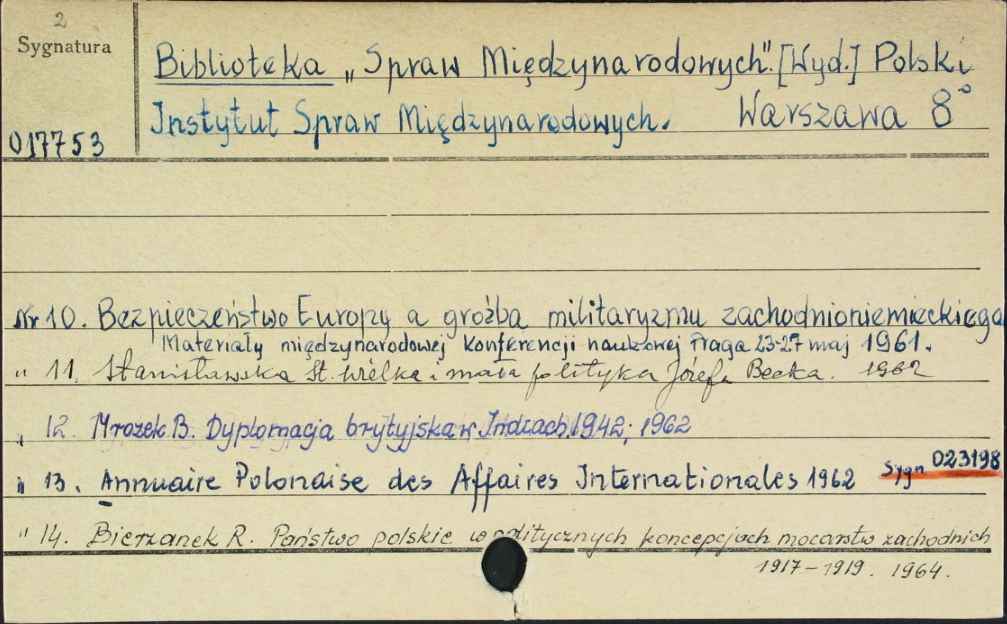 2
Sygnatura
Biblioteka „Spraw Międzynarodowych". [Wyd.] Polski
Instytut Spraw Międzynarodowych. Warszawa 8°
017753
Nr 10. Bezpieczeństwo Europy a groźba militaryzmu zachodnioniemieckiego
Materiały międzynarodowej Konferencji naukowej Praga 23-27 maj 1961.
" 11. Stanisławska St. Wielka i mała polityka Józefa Becka. 1962
" 12. Mrozek B. Dyplomacja brytyjska w Indiach 1942; 1962
" 13. Annuaire Polonaise des Affaires Internationales 1962 Sygn 023198
" 14. Bierzanek R. Państwo polskie w politycznych koncepcjach mocarstw zachodnich
1917-1919. 1964.